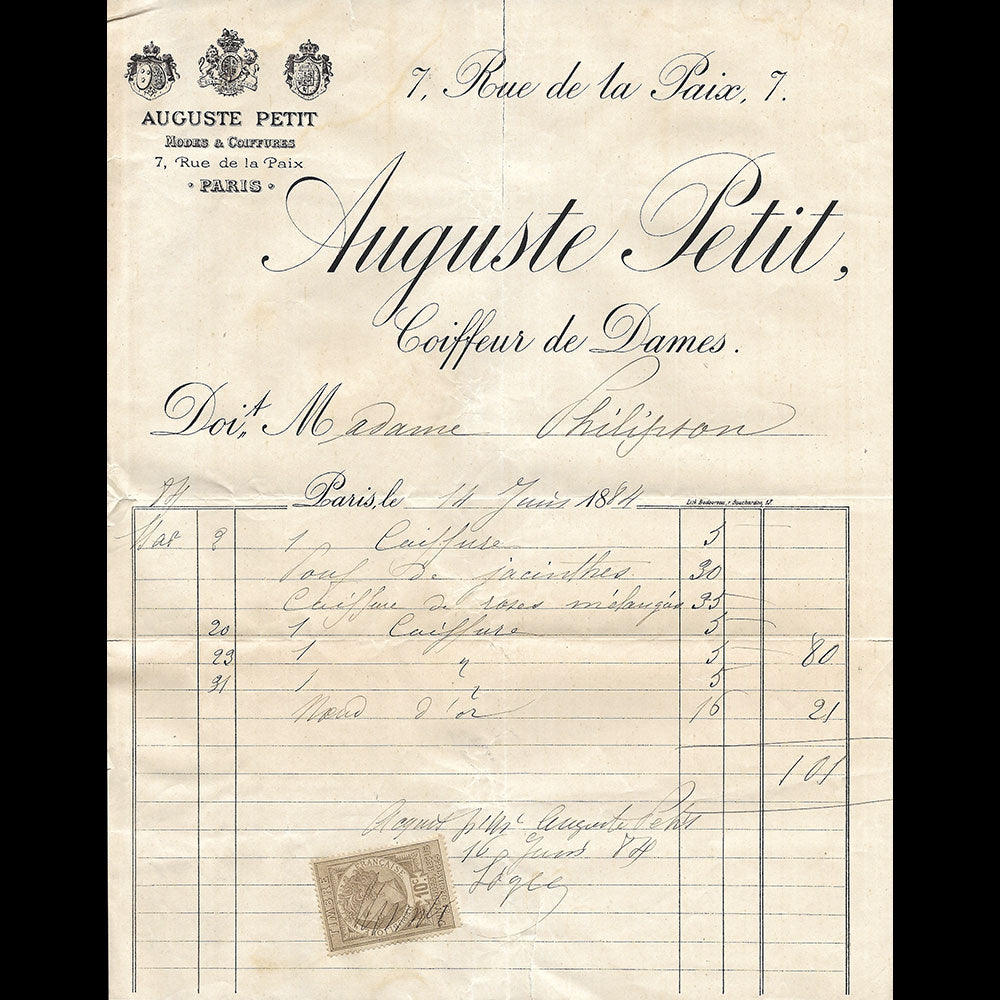 AUGUSTE PETIT
MODES & COIFFURES
7, Rue de la Paix
PARIS
7, Rue de la Paix, 7.
Auguste Petit,
Coiffeur de Dames.
Doit M adame Philipson
84 Paris, le 14 Juin 1884
Mar 2 1 Coiffure 5
Pouf de jacinthes 30
Coiffure de roses mélangées 35
20 1 Coiffure 5
23 1 " 5 80
31 1 " 5
Nœud d'or 16 21
101
Acquit Auguste Petit
16 Juin 84
10c